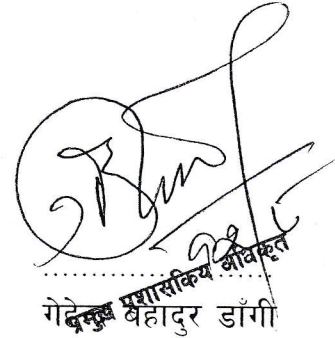 प्रमुख प्रशासकिय अधिकृत
गेहेन्द्र बहादुर डाँगी